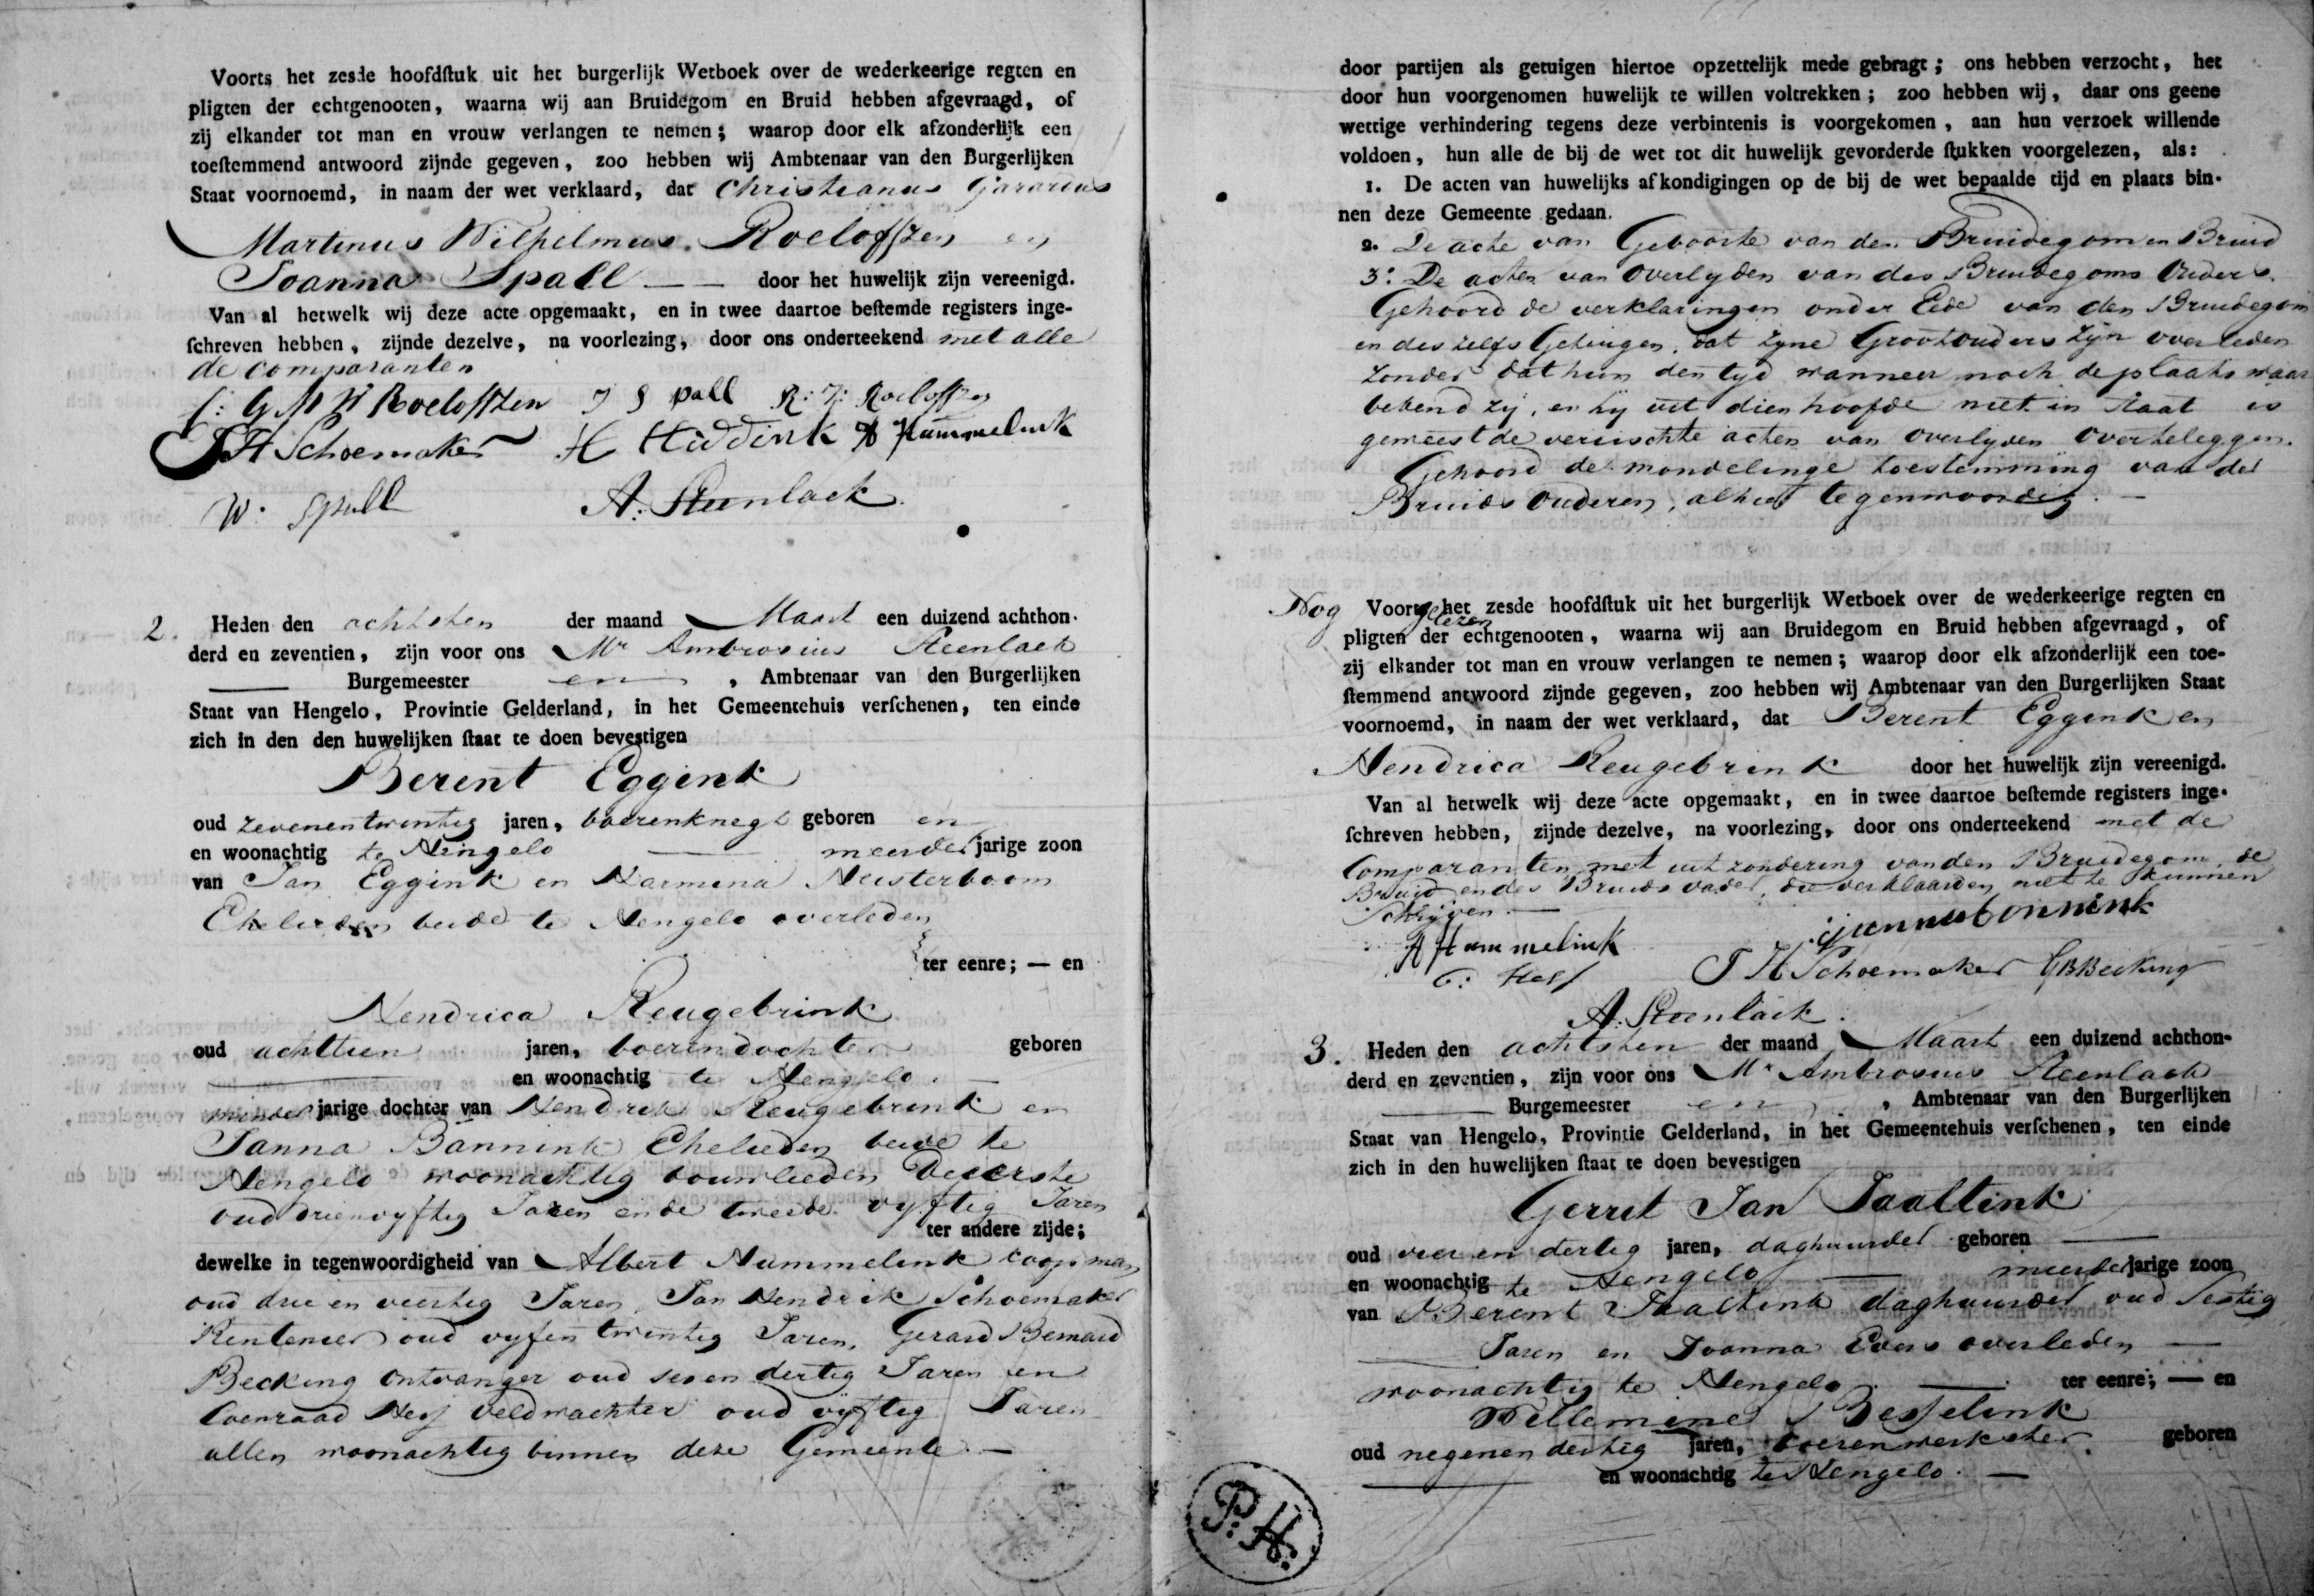 Voorts het zesde hoofdſtuk uit het burgerlijk Wetboek over de wederkeerige regten en
pligten der echtgenooten, waarna wij aan Bruidegom en Bruid hebben afgevraagd, of
zij elkander tot man en vrouw verlangen te nemen; waarop door elk afzonderlijk een
toeſtemmend antwoord zijnde gegeven, zoo hebben wij Ambtenaar van den Burgerlijken
Staat voornoemd, in naam der wet verklaard, dat Christianus Gerardus
Martinus Wilhelmus Roeloffzen en
Joanna Spall —— door het huwelijk zijn vereenigd.
Van al hetwelk wij deze acte opgemaakt, en in twee daartoe beſtemde registers inge-
ſchreven hebben, zijnde dezelve, na voorlezing, door ons onderteekend met alle
de comparanten
C: G M W Roeloffzen J Spall R: J: Roeloffzen
J H Schoemaker H Hiddink A Hummelink
W. Spall A. Steenlack
2. Heden den achtsten der maand Maart een duizend achthon-
derd en zeventien, zijn voor ons Mr Ambrosius Steenlack
—— Burgemeester en, Ambtenaar van den Burgerlijken
Staat van Hengelo, Provintie Gelderland, in het Gemeentehuis verſchenen, ten einde
zich in den den huwelijken ſtaat te doen bevestigen
Berent Eggink
oud zevenentwintig jaren, boerenknegt geboren en
en woonachtig te Hengelo —— meerderjarige zoon
van Jan Eggink en Harmina Nusterboom
Ehelieden beide te Hengelo overleden
ter eenre; — en
Hendrica Reugebrink
oud achttien jaren, boerendochter geboren
—— en woonachtig te Hengelo. —
minderjarige dochter van Hendrik Reugebrink en
Janna Bannink Ehelieden beide te
Hengelo woonachtig bouwlieden De eerste
oud drienvyftig Jaren en de tweede vyftig Jaren
ter andere zijde;
dewelke in tegenwoordigheid van Albert Hummelink koopman
oud drie en veertig Jaren, Jan Hendrik Schoemaker
Rentenier oud vyfentwintig Jaren, Gerard Bernard
Becking Ontvanger oud sesendertig Jaren en
Coenraad Hess veldwachter oud vyftig Jaren
allen woonachtig binnen deze Gemeente. —
door partijen als getuigen hiertoe opzettelijk mede gebragt; ons hebben verzocht, het
door hun voorgenomen huwelijk te willen voltrekken; zoo hebben wij, daar ons geene
wettige verhindering tegens deze verbintenis is voorgekomen, aan hun verzoek willende
voldoen, hun alle de bij de wet tot dit huwelijk gevorderde ſtukken voorgelezen, als:
1. De acten van huwelijks afkondigingen op de bij de wet bepaalde tijd en plaats bin-
nen deze Gemeente gedaan.
2. De acte van Geboorte van den Bruidegom en Bruid
3: De acten van Overlyden van des Bruidegoms Ouders.
Gehoord de verklaringen onder Eede van den Bruidegom
en des zelfs Getuigen, dat zyne Grootouders zyn overleden
zonder dat hun den tyd wanneer noch de plaats waar
bekend zy, en hy uit dien hoofde niet in staat is
gemeest de vereischte acten van overlyden overteleggen.
Gehoord de mondelinge toestemming van der
Bruids Ouderen, alhier tegenwoordig. —
Nog gelezen
Voorts het zesde hoofdſtuk uit het burgerlijk Wetboek over de wederkeerige regten en
pligten der echtgenooten, waarna wij aan Bruidegom en Bruid hebben afgevraagd, of
zij elkander tot man en vrouw verlangen te nemen; waarop door elk afzonderlijk een toe-
ſtemmend antwoord zijnde gegeven, zoo hebben wij Ambtenaar van den Burgerlijken Staat
voornoemd, in naam der wet verklaard, dat Berent Eggink en
Hendrica Reugebrink door het huwelijk zijn vereenigd.
Van al hetwelk wij deze acte opgemaakt, en in twee daartoe beſtemde registers inge-
ſchreven hebben, zijnde dezelve, na voorlezing, door ons onderteekend met de
Comparanten met uitzondering van den Bruidegom, de
Bruid en des Bruids vader, die verklaarden niet te kunnen
Schryven. —
A Hummelink
C: Hess J H Schoemaker GBBecking
A. Steenlack.
3. Heden den achtsten der maand Maart een duizend achthon-
derd en zeventien, zijn voor ons Mr Ambrosius Steenlack
—— Burgemeester en, Ambtenaar van den Burgerlijken
Staat van Hengelo, Provintie Gelderland, in het Gemeentehuis verſchenen, ten einde
zich in den huwelijken ſtaat te doen bevestigen
Gerrit Jan Taaltink
oud vier en dertig jaren, daghuurder geboren ——
en woonachtig te Hengelo —— meerderjarige zoon
van Berent Taaltink daghuurder oud Sestig
Jaren en Joanna Evers overleden —
woonachtig te Hengelo. —— ter eenre; — en
Willemina Besselink
oud negenendertig jaren, boerenwerkster geboren
—— en woonachtig te Hengelo. —
P: H: